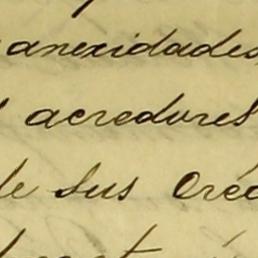 anexidades
acredores
de sus Créd